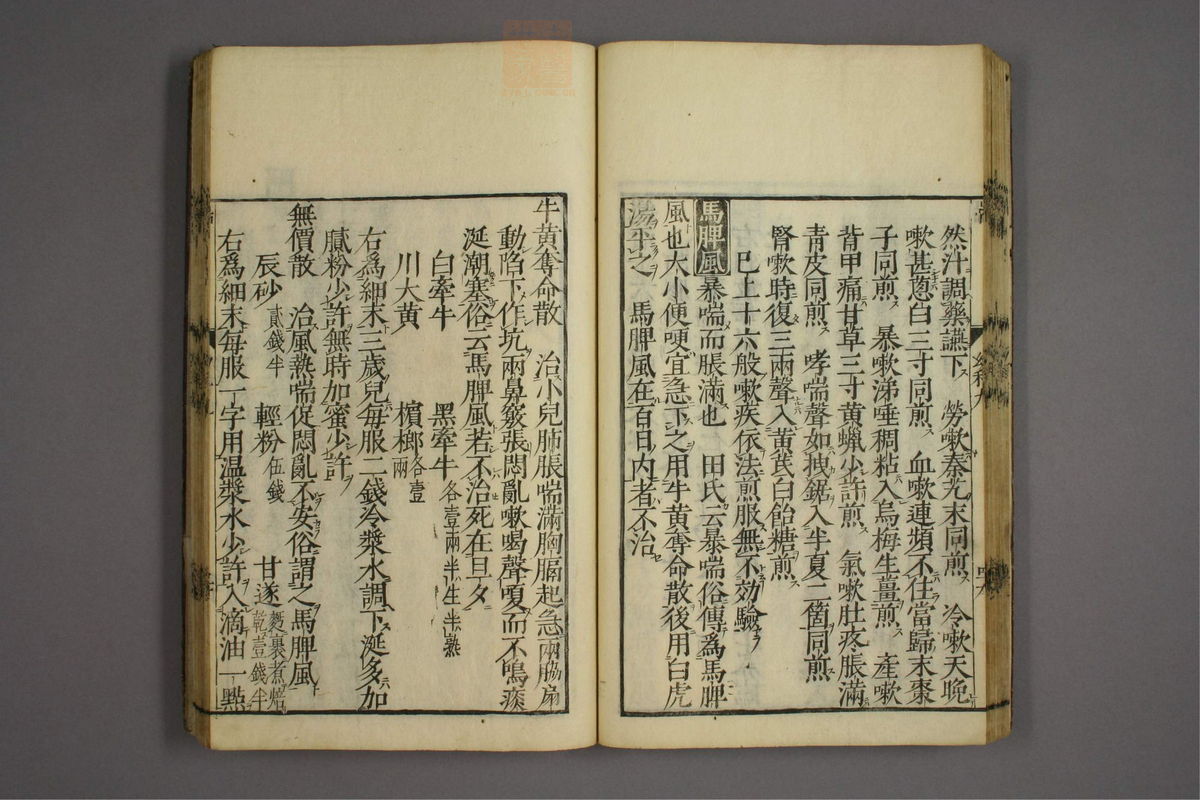 然汁調藥讌下　勞嗽秦艽末同煎　冷嗽天晚
嗽甚蔥白三寸同煎　血嗽連頻不住當歸末棗
子同煎　暴嗽涕唾稠粘入烏梅生薑煎　產嗽
背甲痛甘草三寸黃蠟少許煎　氣嗽肚疼脹滿
青皮同煎　哮喘聲如拽鋸入半夏二箇同煎
腎嗽時復三兩聲入黃芪白飴糖煎
已上十六般嗽疾依法煎服無不効驗
馬脾風暴喘而脹滿也　田氏云暴喘俗傳爲馬脾
風也大小便哽宜急下之用牛黃奪命散後用白虎
湯平之　馬脾風在百日內者不治
牛黃奪命散　治小兒肺脹喘滿胸膈起急兩脇扇
動陷下作坑兩鼻竅張悶亂嗽喝聲嗄而不鳴痰
涎潮塞俗云馬脾風若不治死在旦夕
白牽牛　黑牽牛各壹兩半生半熟
川大黃　檳榔各壹兩
右爲細末三歲兒每服二錢冷漿水調下涎多加
膩粉少許無時加蜜少許
無價散　治風熱喘促悶亂不安俗謂之馬脾風
辰砂貳錢半　輕粉伍錢　甘遂麪裹煮焙乾壹錢半
右爲細末每服一字用温漿水少許入滴油一點